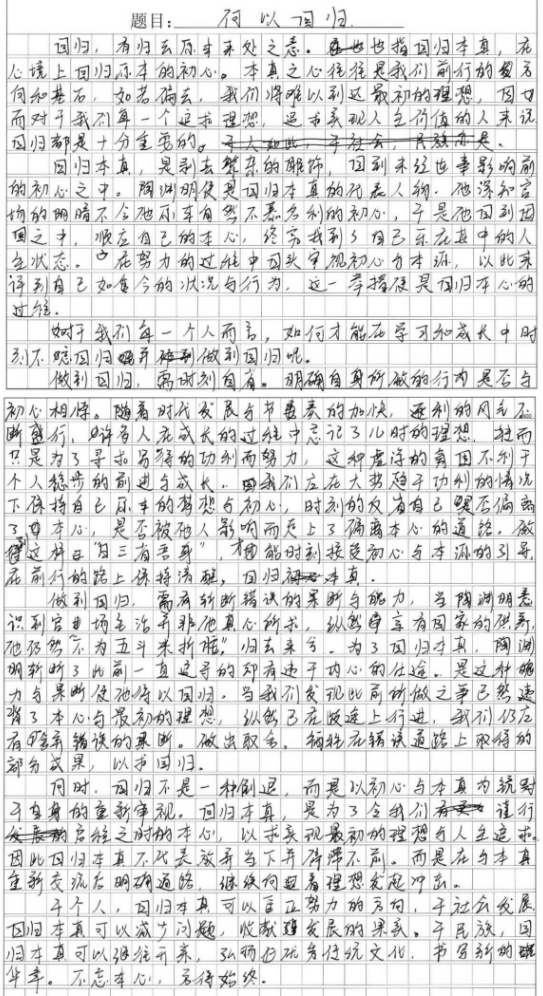 题目：何以回归
回归，有归去原本来处之意。也指回归本真，在
心境上回归原本的初心。本真之心往往是我们前行的方
向和基石，如若偏去，我们将难以到达最初的理想，因
而对于我们每一个追求理想，追求实现人生价值的人来说
回归都是十分重要的。
回归本真，是剥去繁杂的雕饰，回到未经世事影响前
的初心之中。陶渊明便是回归本真的代表人物。他深知官
场的明暗不合他原本自然不慕名利的初心，于是他回到田
园之中，顺应自己的本心，终究找到了自己乐在其中的人
生状态。在努力的过程中回头审视初心与本源，以此来
评判自己如今的状况与行为，这一举措便是回归本心的
过程。
对于我们每一个人而言，如何才能在学习和成长中时
刻不忘回归并做到回归呢。
做到回归，需时刻自省。明确自身所做的行为是否与
初心相悖。随着时代发展与节奏的加快，逐利的风气不
断盛行，许多人在成长的过程中忘记了儿时的理想，转而
只是为了寻求易得的功利而努力，这种虚浮的氛围不利于
个人稳步的前进与成长。我们应在大势趋于功利的情况
下保持自己原本的梦想与初心，时刻的反省自己是否偏离
了本心，是否被他人影响而走上了偏离本心的道路。做
到这种日“日三省吾身”，才能时刻接受初心与本源的引导，
在前行的路上保持清醒，回归本真。
做到回归，需有斩断错误的果断与能力，当陶渊明意
识到官场生活并非他真心所求，纵然享有国家的供养，
他仍然“不为五斗米折腰”归去来兮。为了回归本真，陶渊
明斩断了此前一直追寻的却有违于内心的仕途。是这种魄
力与果断使他得以回归。当我们发现此前所做之事已然违
背了本心与最初的理想，纵然已在歧途上行进，我们仍应
有舍弃错误的果断。做出取舍。牺牲在错误道路上取得的
部分成果，以求回归。
同时，回归不是一种倒退，而是以初心与本真为镜对
于自身的重新审视。回归本真，是为了令我们谨行
启程之时的本心，以求实现最初的理想与人生追求。
因此回归本真不代表放弃当下并停滞不前。而是在与本真
重新交流后明确道路，继续向着理想发起冲击。
于个人，回归本真可以匡正努力的方向，于社会发展，
回归本真可以减少问题，收获发展的果实。于民族，回
归本真可以继往开来，弘扬优秀传统文化，书写新的
华章。不忘本心，方得始终。